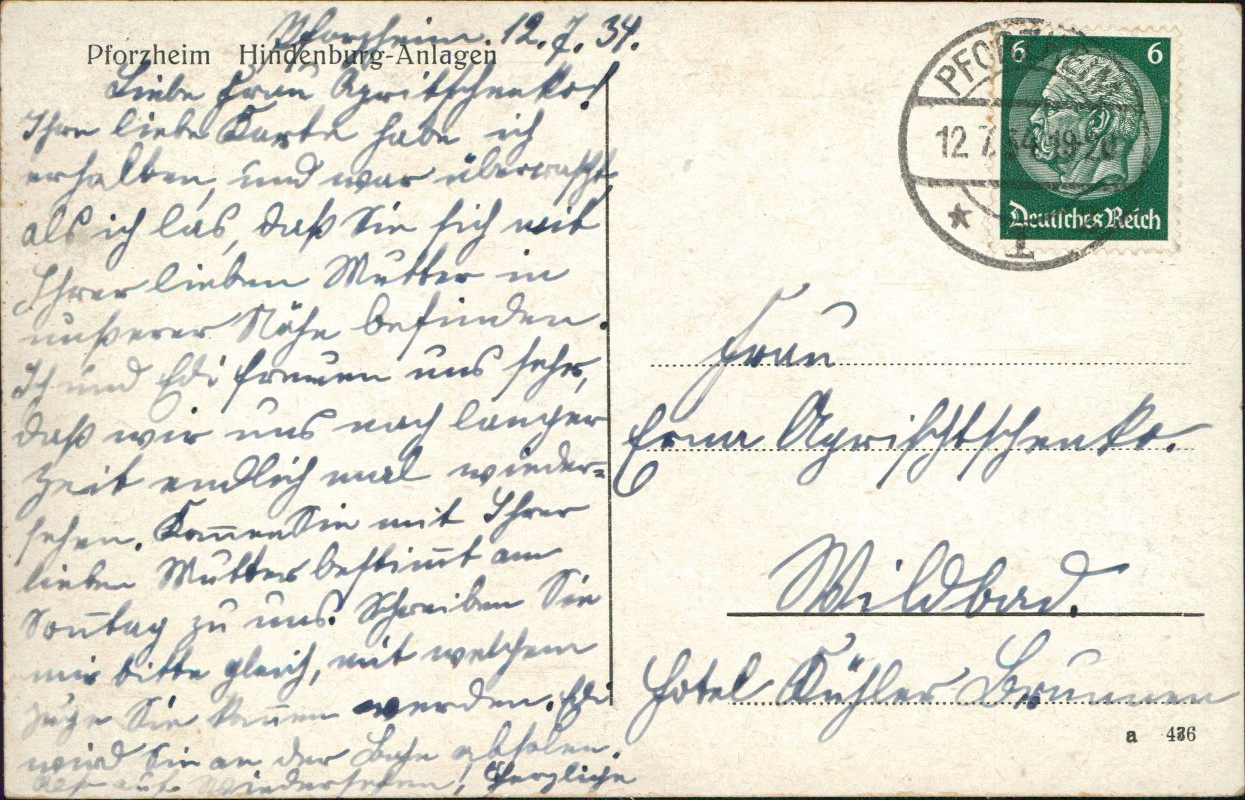 Pforzheim, 12.7.34.
Pforzheim Hindenburg-Anlagen
Liebe Frau Apritschenko!
Ihre liebe Karte habe ich
erhalten, und war überrascht,
als ich las, daß Sie sich mit
Ihrer lieben Mutter in
unserer Nähe befinden.
Ich und Edi freuen uns sehr,
daß wir uns nach langer
Zeit endlich mal wieder=
sehen. Kom̄en Sie mit Ihrer
lieben Mutter bestim̄t am
Son̄tag zu uns. Schreiben Sie
mir bitte gleich, mit welchem
Zuge Sie kom̄en werden. Edi
wird Sie an der Bahn abholen.
Also auf Wiedersehen! Herzliche
PFORZHEIM
12.7.34.19-20
* 1
6 6
Deutsches Reich
Frau
Erna Aprischtschenko.
Wildbad.
Hotel Kühler Brunnen
a 436